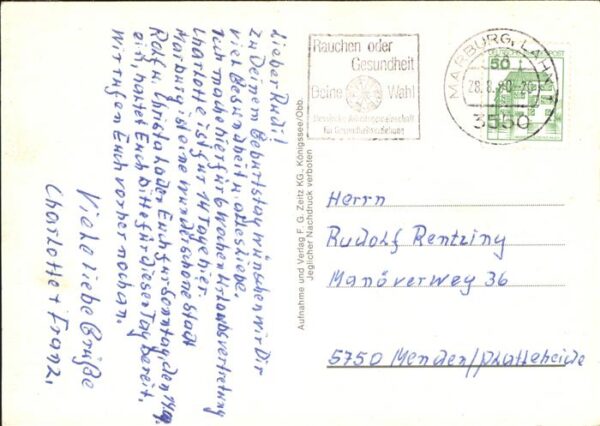 Lieber Rudi!
Zu Deinem Geburtstag wünschen wir Dir
viel Gesundheit u. alles Liebe.
Ich mache hier für 6 Wochen Urlaubsvertretung
Charlotte ist für 14 Tage hier.
Marburg ist eine wunderschöne Stadt
Rolf u. Christa laden Euch für Sonntag, den 14.9.
ein, haltet Euch bitte für diesen Tag bereit.
Wir rufen Euch vorher noch an.
Viele liebe Grüße
Charlotte + Franz.
Aufnahme und Verlag F. G. Zeitz KG., Königssee/Obb.
Jeglicher Nachdruck verboten
Rauchen oder
Gesundheit
Deine Wahl
für Gesundheitserziehung
MARBURG, LAHN 1
28.8.80-20
3550
50
Herrn
Rudolf Rentzing
Manöverweg 36
5750 Menden/Platteheide